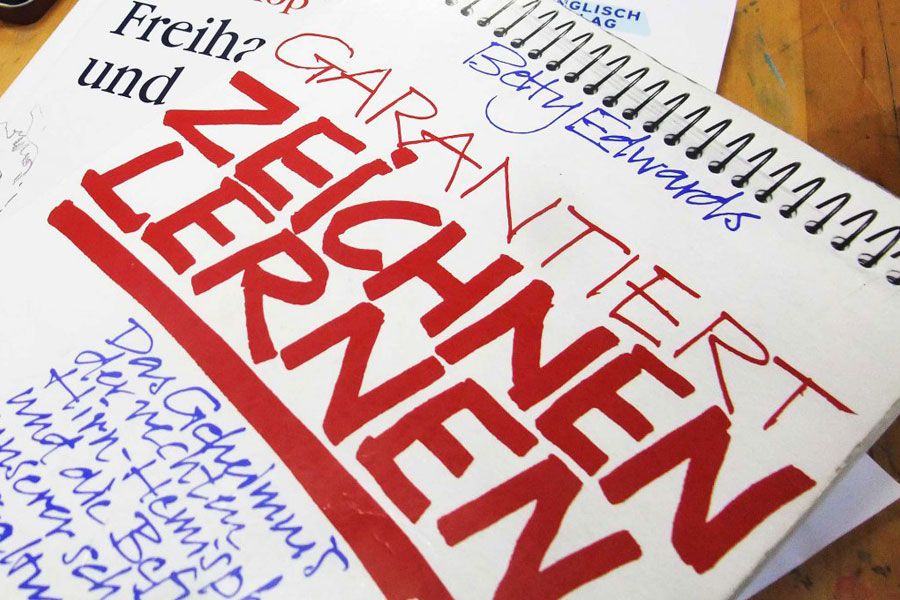 op
Freiha
und
NGLISCH
LAG
Betty Edwards
GARANTIERT
ZEICHNEN
LERNEN
Das Geheimnis
der rechten
Hirn-Hemisph
und die Bef
unserer sch
altu